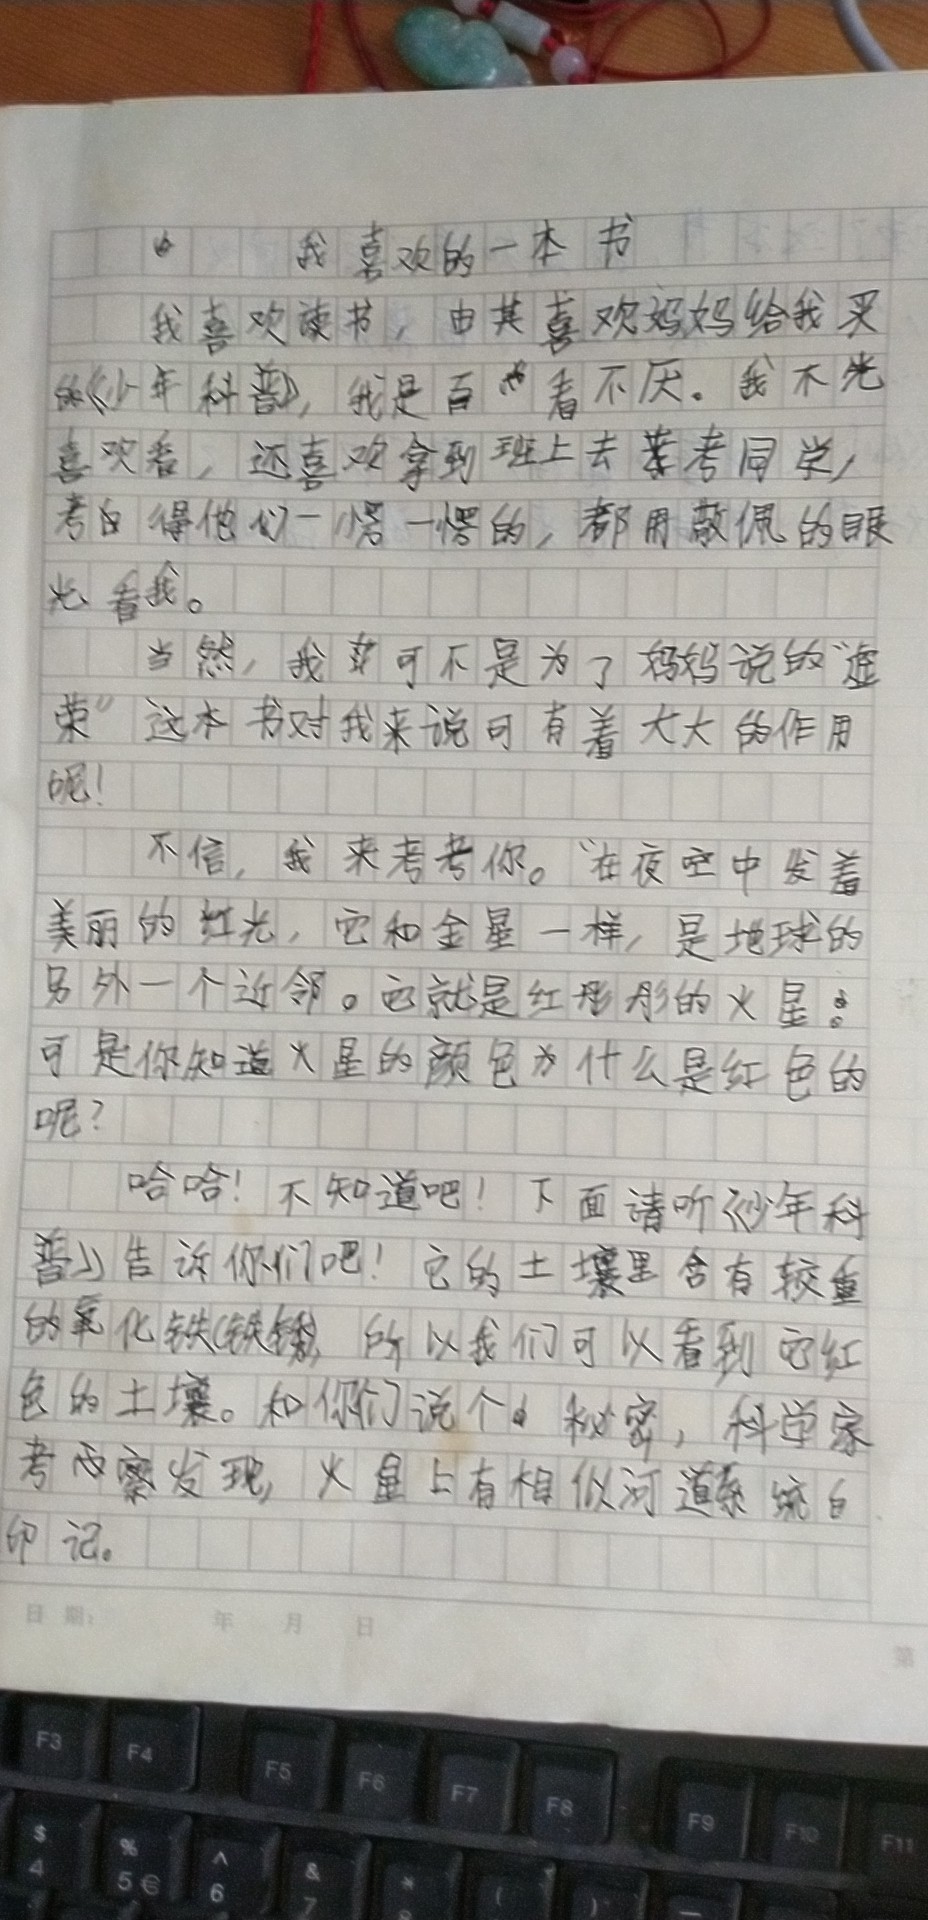 我喜欢的一本书
我喜欢读书，由其喜欢妈妈给我买
的《少年科普》，我是百看不厌。我不光
喜欢看，还喜欢拿到班上去考同学，
考得他们一愣一愣的，都用敬佩的眼
光看我。
当然，我可不是为了妈妈说的“虚
荣”这本书对我来说可有着大大的作用
呢！
不信，我来考考你。“在夜空中发着
美丽的红光，它和金星一样，是地球的
另外一个近邻。它就是红彤彤的火星。
可是你知道火星的颜色为什么是红色的
呢？
哈哈！不知道吧！下面请听《少年科
普》告诉你们吧！它的土壤里含有较重
的氧化铁(铁锈)，所以我们可以看到它红
色的土壤。和你们说个秘密，科学家
考察发现，火星上有相似河道系统的
印记。
日期： 年 月 日
第
F3 F4 F5 F6 F7 F8 F9 F10 F11
$ % ^ & * ( ) —
4 5 € 6 7 8